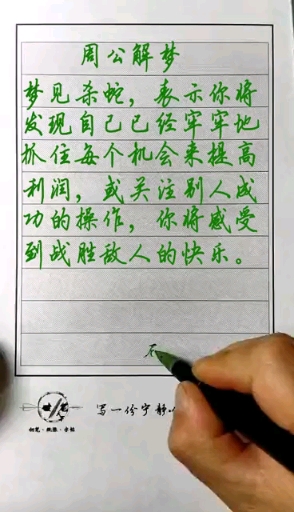 周公解梦
梦见杀蛇，表示你将
发现自己已经牢牢地
抓住每个机会来提高
利润，或关注别人成
功的操作，你将感受
到战胜敌人的快乐。
写一份宁静